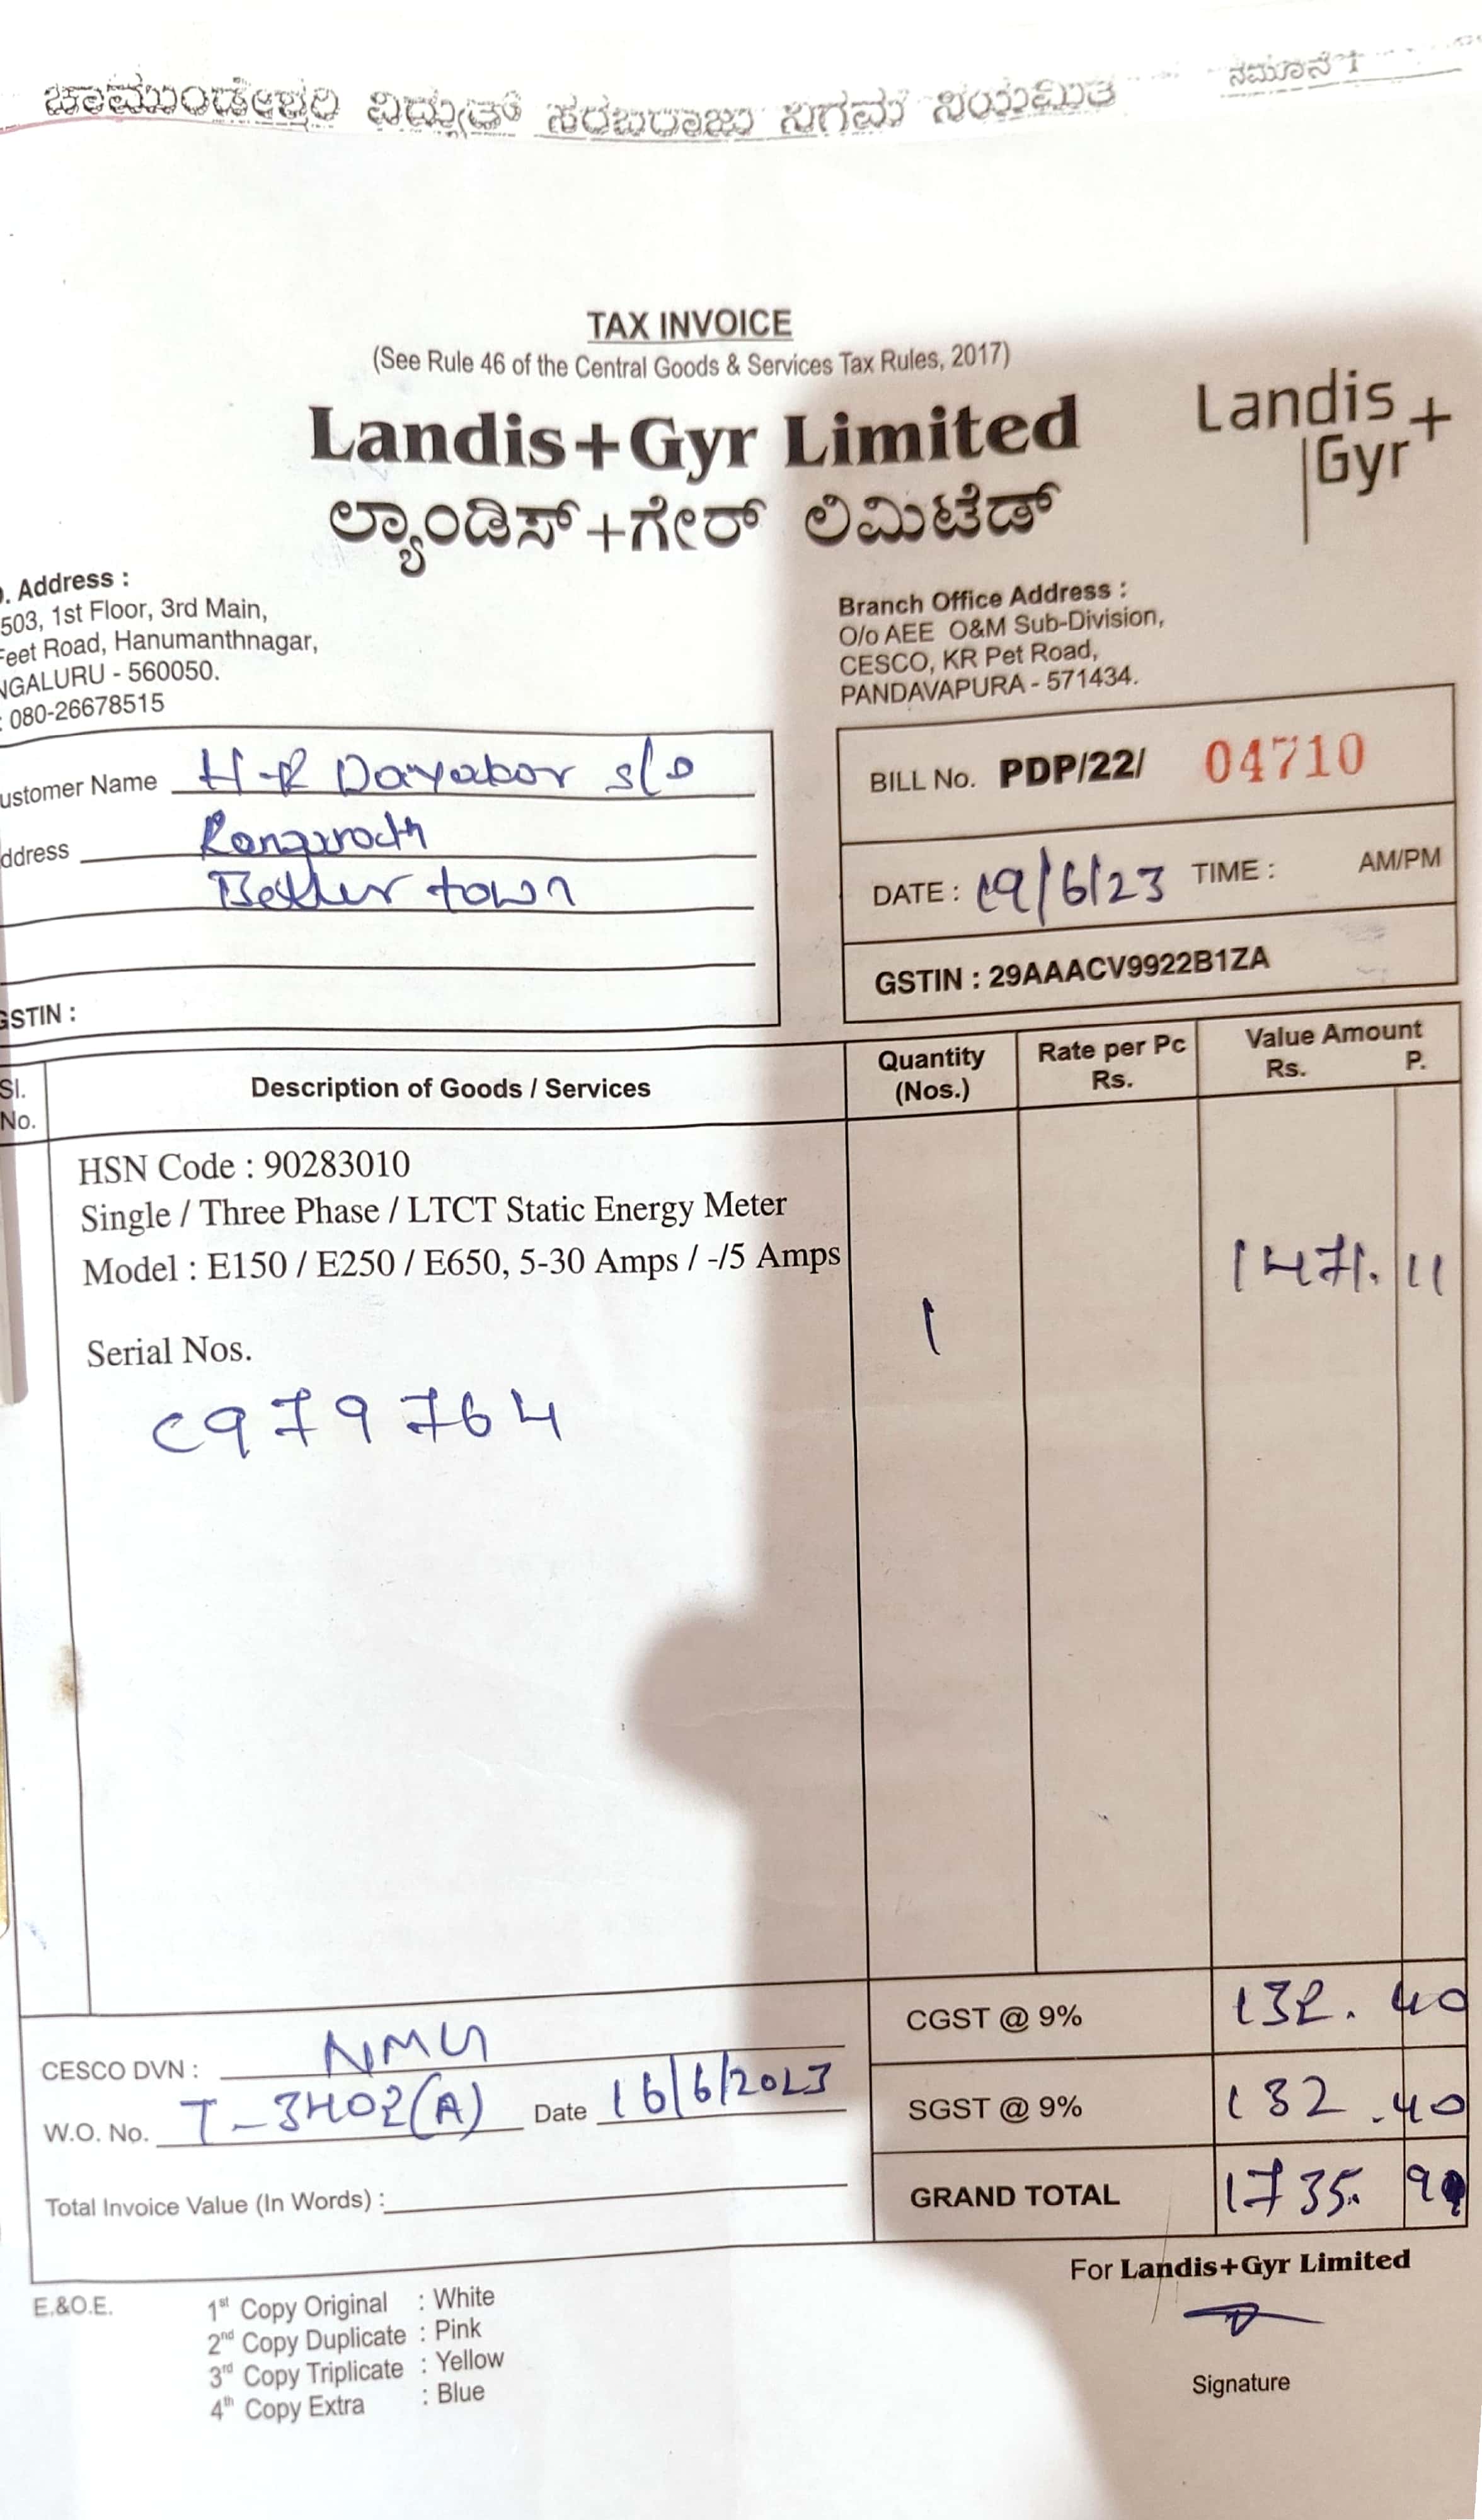 ಚಾಮುಂಡೇಶ್ವರಿ ವಿದ್ಯುತ್ ಸರಬರಾಜು ನಿಗಮ ನಿಯಮಿತ
ನಮೂನೆ 1
TAX INVOICE
(See Rule 46 of the Central Goods & Services Tax Rules, 2017)
Landis+Gyr Limited
Landis+
Gyr
ಲ್ಯಾಂಡಿಸ್+ಗೇರ್ ಲಿಮಿಟೆಡ್
. Address :
503, 1st Floor, 3rd Main,
Feet Road, Hanumanthnagar,
NGALURU - 560050.
: 080-26678515
Branch Office Address :
O/o AEE O&M Sub-Division,
CESCO, KR Pet Road,
PANDAVAPURA - 571434.
ustomer Name H-R Dayakar s/o
ddress
town
GSTIN :
BILL No. PDP/22/ 04710
DATE : 19/6/23 TIME : AM/PM
GSTIN : 29AAACV9922B1ZA
Sl. No. Description of Goods / Services Quantity (Nos.) Rate per Pc Rs. Value Amount Rs. P.
HSN Code : 90283010
Single / Three Phase / LTCT Static Energy Meter
Model : E150 / E250 / E650, 5-30 Amps / -/5 Amps
1 1471. 11
Serial Nos.
C979764
CGST @ 9% 132. 40
SGST @ 9% 132 .40
GRAND TOTAL 1735.
CESCO DVN : NMG
W.O. No. T-3402(A) Date 16/6/2023
Total Invoice Value (In Words) :
For Landis+Gyr Limited
Signature
E.&O.E.
1st Copy Original : White
2nd Copy Duplicate : Pink
3rd Copy Triplicate : Yellow
4th Copy Extra : Blue